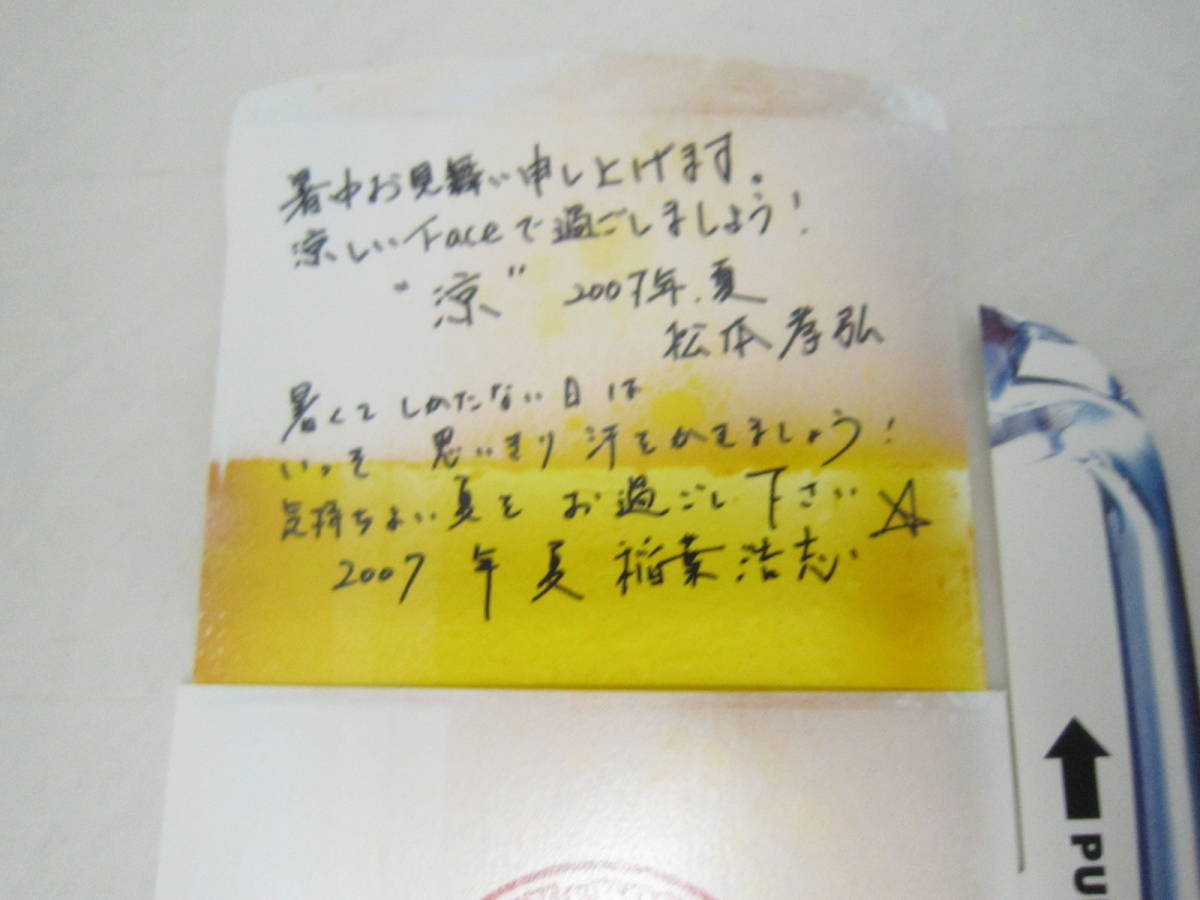 暑中お見舞い申し上げます。
涼しいFaceで過ごしましょう!
"涼" 2007年.夏
松本孝弘
暑くてしかたない日は
いっそ 思いきり汗をかきましょう!
気持ちよい夏をお過ごし下さい☆
2007年夏 稲葉浩志
PU